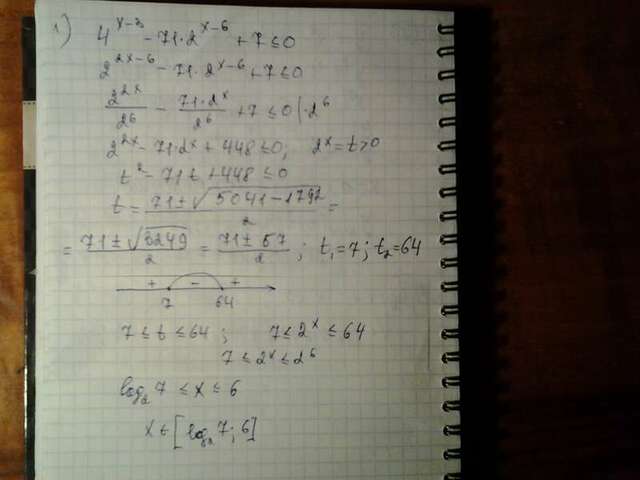 1) 4^{x-3} - 71·2^{x-6} + 7 ≤ 0
2^{2x-6} - 71·2^{x-6} + 7 ≤ 0
2^{2x}/2^6 - 71·2^x/2^6 + 7 ≤ 0 | ·2^6
2^{2x} - 71·2^x + 448 ≤ 0; 2^x = t > 0
t^2 - 71t + 448 ≤ 0
t = (71 ± √(5041 - 1792))/2 =
= (71 ± √3249)/2 = (71 ± 57)/2 ; t₁ = 7; t₂ = 64
+ - +
7 64
7 ≤ t ≤ 64 ; 7 ≤ 2^x ≤ 64
7 ≤ 2^x ≤ 2^6
log₂ 7 ≤ x ≤ 6
x ∈ [log₂ 7; 6]